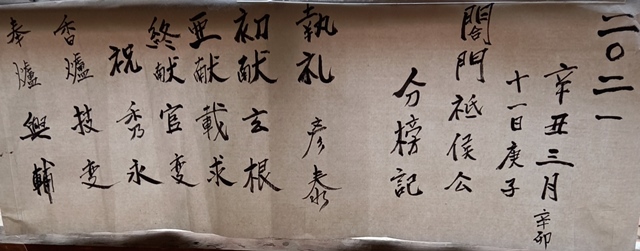 二〇二一
辛丑三月辛卯
十一日庚子
閤門祗侯公
分榜記
執礼 彦泰
初献 玄根
亜献 載求
終献官 变
祝 秀永
香爐 技变
奉爐 興輔